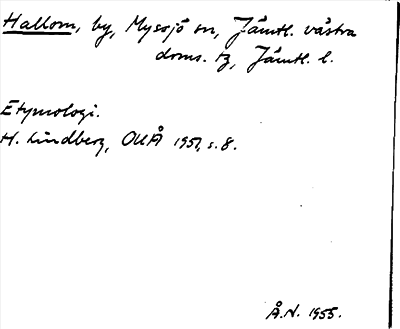 Hallom, by, Myssjö sn, Jämtl. västra
doms. tz, Jämtl. l.
Etymologi.
H. Lindberg, OUÅ 1951, s. 8.
Å.N. 1955.